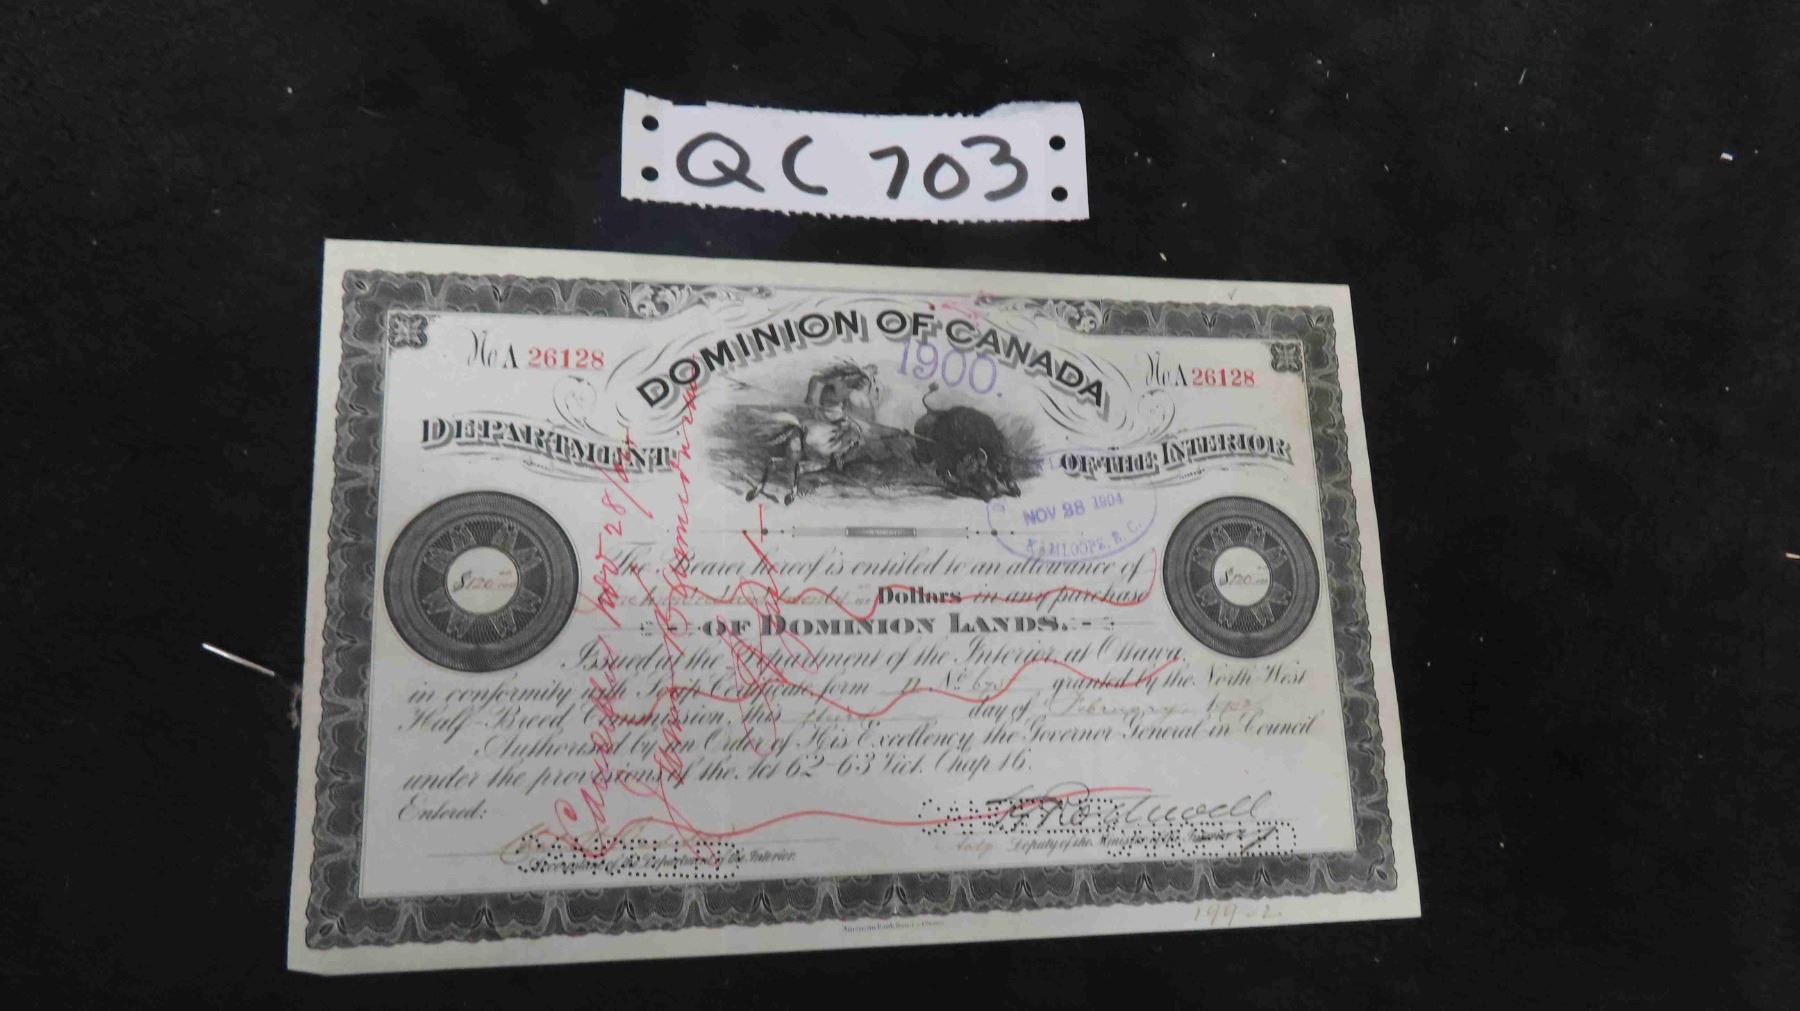 QC 703
No A 26128
No A 26128
DOMINION OF CANADA
1900.
DEPARTMENT OF THE INTERIOR
NOV 28 1904
KAMLOOPS, B. C.
$120
$120
The Bearer hereof is entitled to an allowance of
one hundred and twenty Dollars in any purchase
OF DOMINION LANDS.
Issued at the Department of the Interior, at Ottawa,
in conformity with Scrip Certificate, form D No granted by the North West
Half-Breed Commission, this third day of February
Authorised by an Order of His Excellency the Governor General in Council
under the provisions of the Act 62-63 Vict. Chap 16.
Entered:
Accountant of the Department of the Interior.
Deputy of the Minister of the Interior
Cancelled Nov 28/04
American Bank Note Co Ottawa